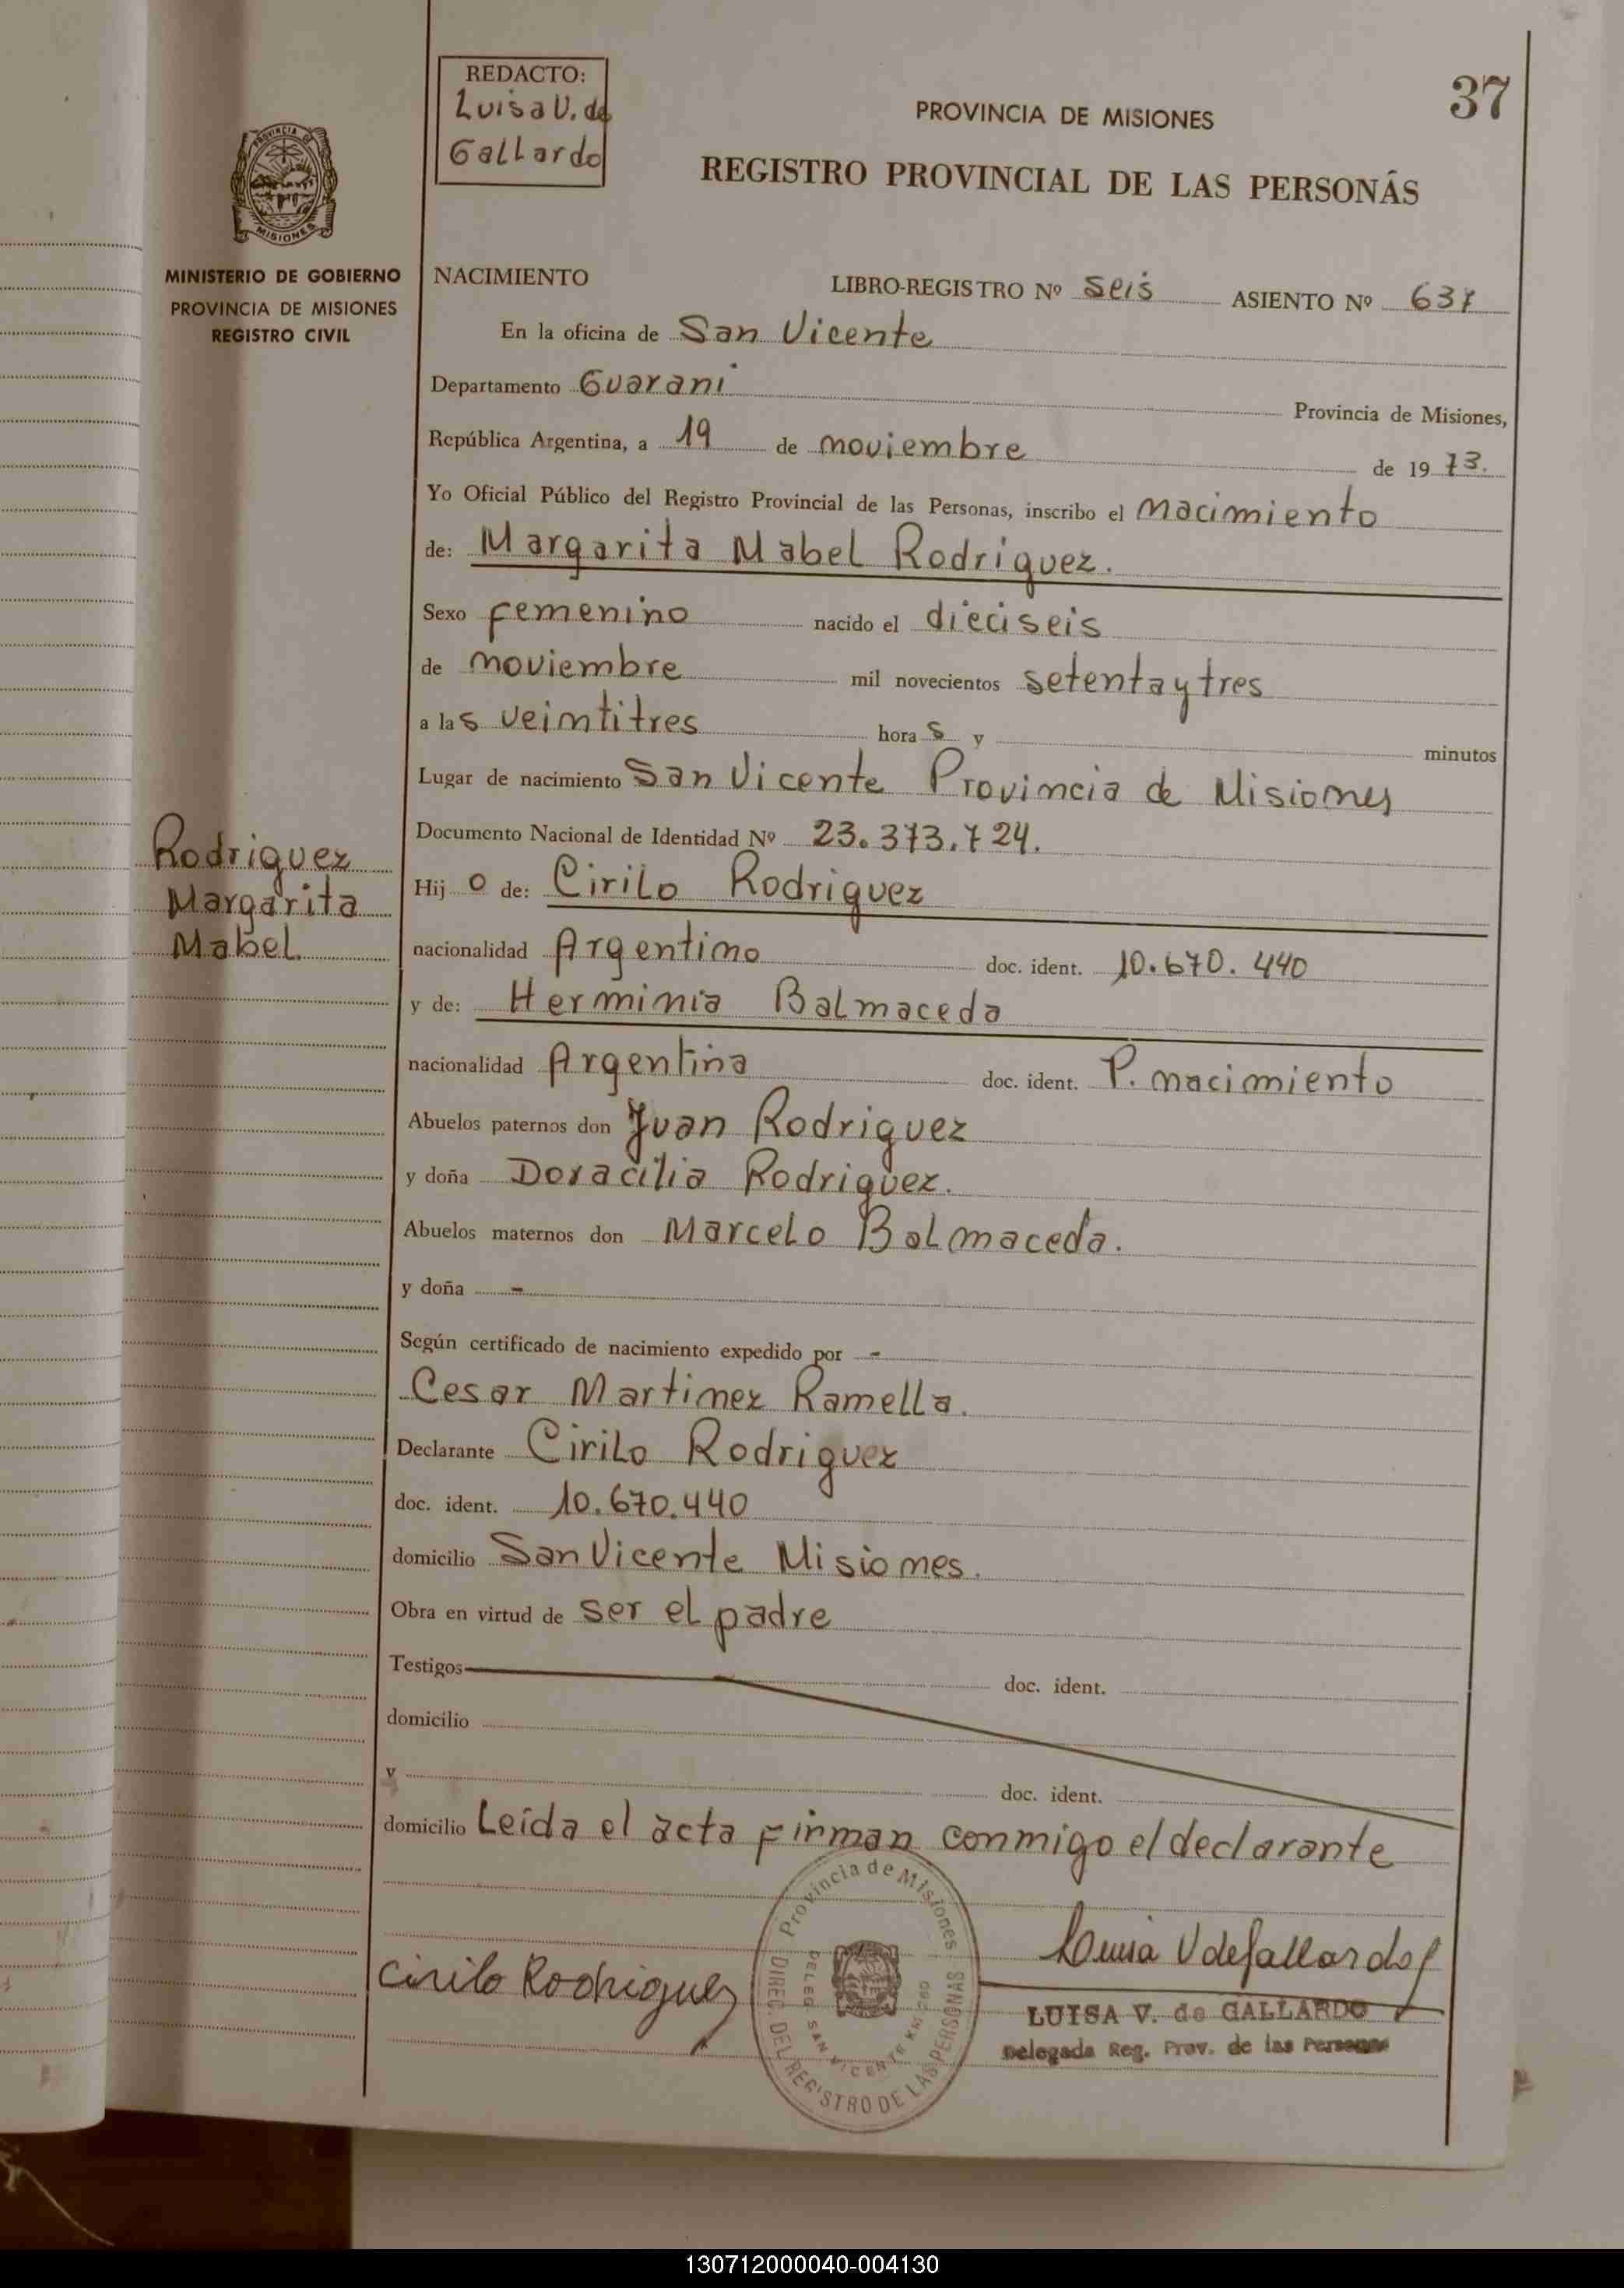 REDACTO:
Luisa V. de
Gallardo
37
PROVINCIA DE MISIONES
REGISTRO PROVINCIAL DE LAS PERSONAS
PROVINCIA DE
MISIONES
MINISTERIO DE GOBIERNO
PROVINCIA DE MISIONES
REGISTRO CIVIL
NACIMIENTO LIBRO-REGISTRO Nº seis ASIENTO Nº 637
En la oficina de San Vicente
Departamento Guarani Provincia de Misiones,
República Argentina, a 19 de noviembre de 1973.
Yo Oficial Público del Registro Provincial de las Personas, inscribo el nacimiento
de: Margarita Mabel Rodriguez.
Sexo femenino nacido el dieciseis
de noviembre mil novecientos setenta y tres
a las veintitres horas y minutos
Lugar de nacimiento San Vicente Provincia de Misiones
Documento Nacional de Identidad Nº 23.373.724.
Rodriguez
Margarita
Mabel.
Hijo de: Cirilo Rodriguez
nacionalidad Argentino doc. ident. 10.670.440
y de: Herminia Balmaceda
nacionalidad Argentina doc. ident. P. nacimiento
Abuelos paternos don Juan Rodriguez
y doña Doracilia Rodriguez.
Abuelos maternos don Marcelo Balmaceda.
y doña -
Según certificado de nacimiento expedido por -
Cesar Martinez Ramella.
Declarante Cirilo Rodriguez
doc. ident. 10.670.440
domicilio San Vicente Misiones.
Obra en virtud de ser el padre
Testigos doc. ident.
domicilio
y doc. ident.
domicilio Leída el acta firman conmigo el declarante
Cirilo Rodriguez
Provincia de Misiones
DIREC. DEL REGISTRO DE LAS PERSONAS
DELEG. SAN VICENTE
Luisa V de Gallardo
LUISA V. de GALLARDO
Delegada Reg. Prov. de las Personas
130712000040-004130